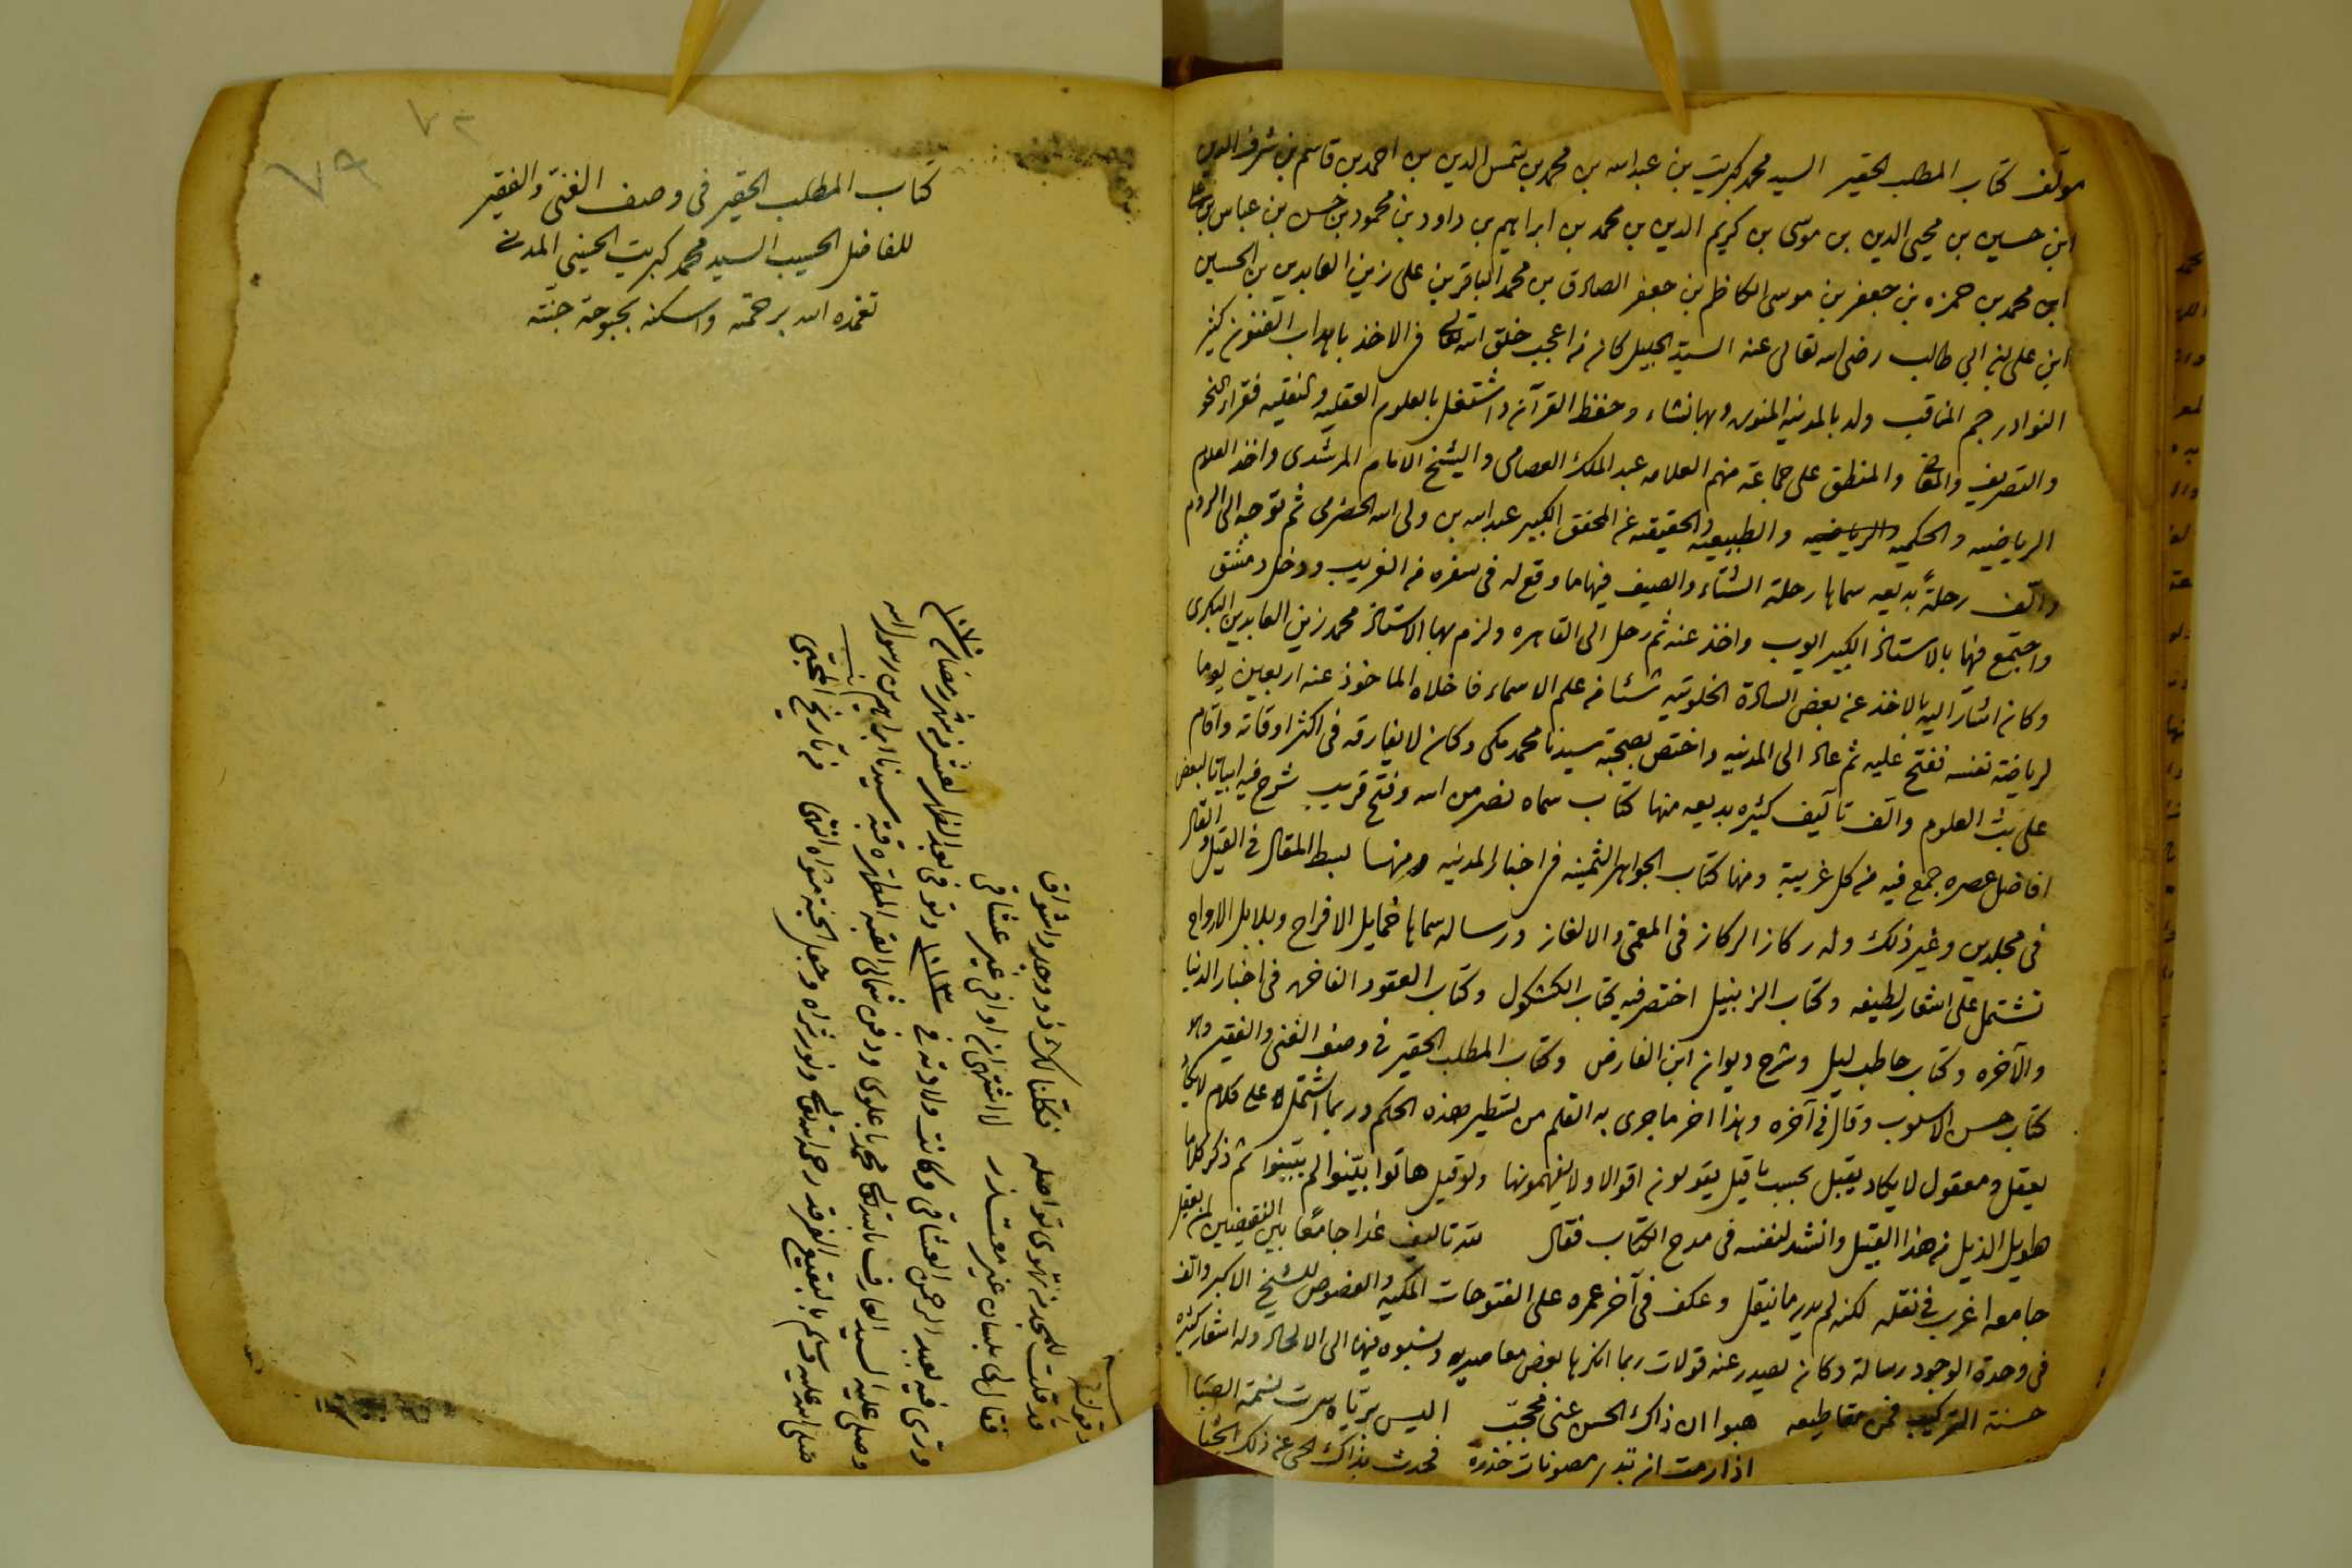 مولف كتاب المطلب الحقير السيد محمد كبريت بن عبد الله بن محمد بن شمس الدين بن احمد بن قاسم بن شرف الدين
ابن حسين بن محيى الدين بن موسى بن كريم الدين بن محمد بن ابراهيم بن داود بن محمود بن حسن بن عباس بن على
ابن محمد بن حمزه بن جعفر بن موسى الكاظم بن جعفر الصادق بن محمد الباقر بن على زين العابدين بن الحسين
ابن على بن ابي طالب رضى الله تعالى عنه السيد الجليل كان من اعجب خلق الله تعالى فى الاخذ باهداب الفنون كثير
النوادر جم المناقب ولد بالمدينه المنوره وبها نشاء وحفظ القرآن واشتغل بالعلوم العقليه والنقليه فقراء النحو
والتصريف والمعانى والمنطق على جماعة منهم العلامه عبد الملك العصامى والشيخ الامام المرشدى واخذ العلوم
الرياضيه والحكميه والرياضيه والطبيعيه والحقيقه عن المحقق الكبير عبد الله بن ولى الله الحضرمى ثم توجه الى الروم
والّف رحلةً بديعه سماها رحلة الشتاء والصيف فيها ما وقع له فى سفره من الغريب ودخل دمشق
واجتمع فيها بالاستاذ الكبير ايوب واخذ عنه ثم رحل الى القاهره ولزم بها الاستاذ محمد زين العابدين البكرى
وكان اشار اليه بالاخذ عن بعض السادة الخلوتيه شئا من علم الاسماء فاخلاه الماخوذ عنه اربعين يوما
لرياضة نفسه ففتح عليه ثم عاد الى المدينه واختص بصحبة سيدنا محمد مكى وكان لا يفارقه فى اكثر اوقاته واقام
على بث العلوم والّف تآليف كثيره بديعه منها كتاب سماه نصر من الله وفتح قريب شرح فيه ابياتا لبعض
افاضل عصره جمع فيه من كل غريبة ومنها كتاب الجواهر الثمينه فى اخبار المدينه ومنها بسط المقال فى القيل والقال
فى مجلدين وغير ذلك وله ركاز الركاز فى المعمّى والالغاز ورساله سماها خمايل الافراح وبلابل الارواح
تشتمل على اشعار لطيفه وكتاب الزنبيل اختصر فيه كتاب الكشكول وكتاب العقود الفاخره فى اخبار الدنيا
والآخره وكتاب حاطب ليل وشرح ديوان ابن الفارض وكتاب المطلب الحقير فى وصف الغنى والفقير وهو
كتاب حسن الاسلوب وقال فى آخره وهذا اخر ما جرى به القلم من تسطير هذه الحكم وربما اشتمل على كلام لا يكاد
يعقل ومعقول لا يكاد يقبل بحسب ما قيل يقولون اقوالا ولا يفهمونها ولو قيل هاتوا بيّنوا لم يبينوا ثم ذكر كلاما
طويل الذيل من هذا القبيل وانشد لنفسه فى مدح الكتاب فقال لله تاليف غدا جامعًا بين النقيضين لمن يعقل
جامعه اغرب فى نقله لكنه لم يدر ما ينقل وعكف فى آخر عمره على الفتوحات المكيه والفصوص للشيخ الاكبر والّف
فى وحدة الوجود رسالة وكان يصدر عنه قولات ربما انكرها بعض معاصريه ونسبوه فيها الى الالحاد وله اشعار كثيره
حسنة التركيب فمن مقاطيعه هبوا ان ذاك الحسن عنى محجّب اليس بريّاه سرت نسمة الصّبا
اذا رمت ان تبدى مصونات خدره فحدث بذاك الحى عن ذلك الخبا
كتاب المطلب الحقير فى وصف الغنىّ والفقير
للفاضل الحسيب السيد محمد كبريت الحسينى المدنى
تغمده الله برحمته واسكنه بحبوحة جنته
وقوله
قد قلت للمجد من تهوى تواصله فكلنا لك ذو وجد واشواق
فقال لى بلسان غير معتذر لا اشتهى ان اوافى غير عشاقى
ورّى فيه بعبد الرحمن العشاقى وكانت ولادته فى ١٠١٢ وتوفى بعد الظهر لعشر من شهر رمضان ١٠٧٠
وصلى عليه السيد العارف بالله تعالى محمد باعلوى ودفن شمالى القبه المطهره قبة سيدنا ابراهيم بن رسول الله
صلى الله عليه وسلم بالبقيع الغرقد رحمه الله تعالى ونور ثراه وجعل الجنة مثواه انتهى من تاريخ المحبّى